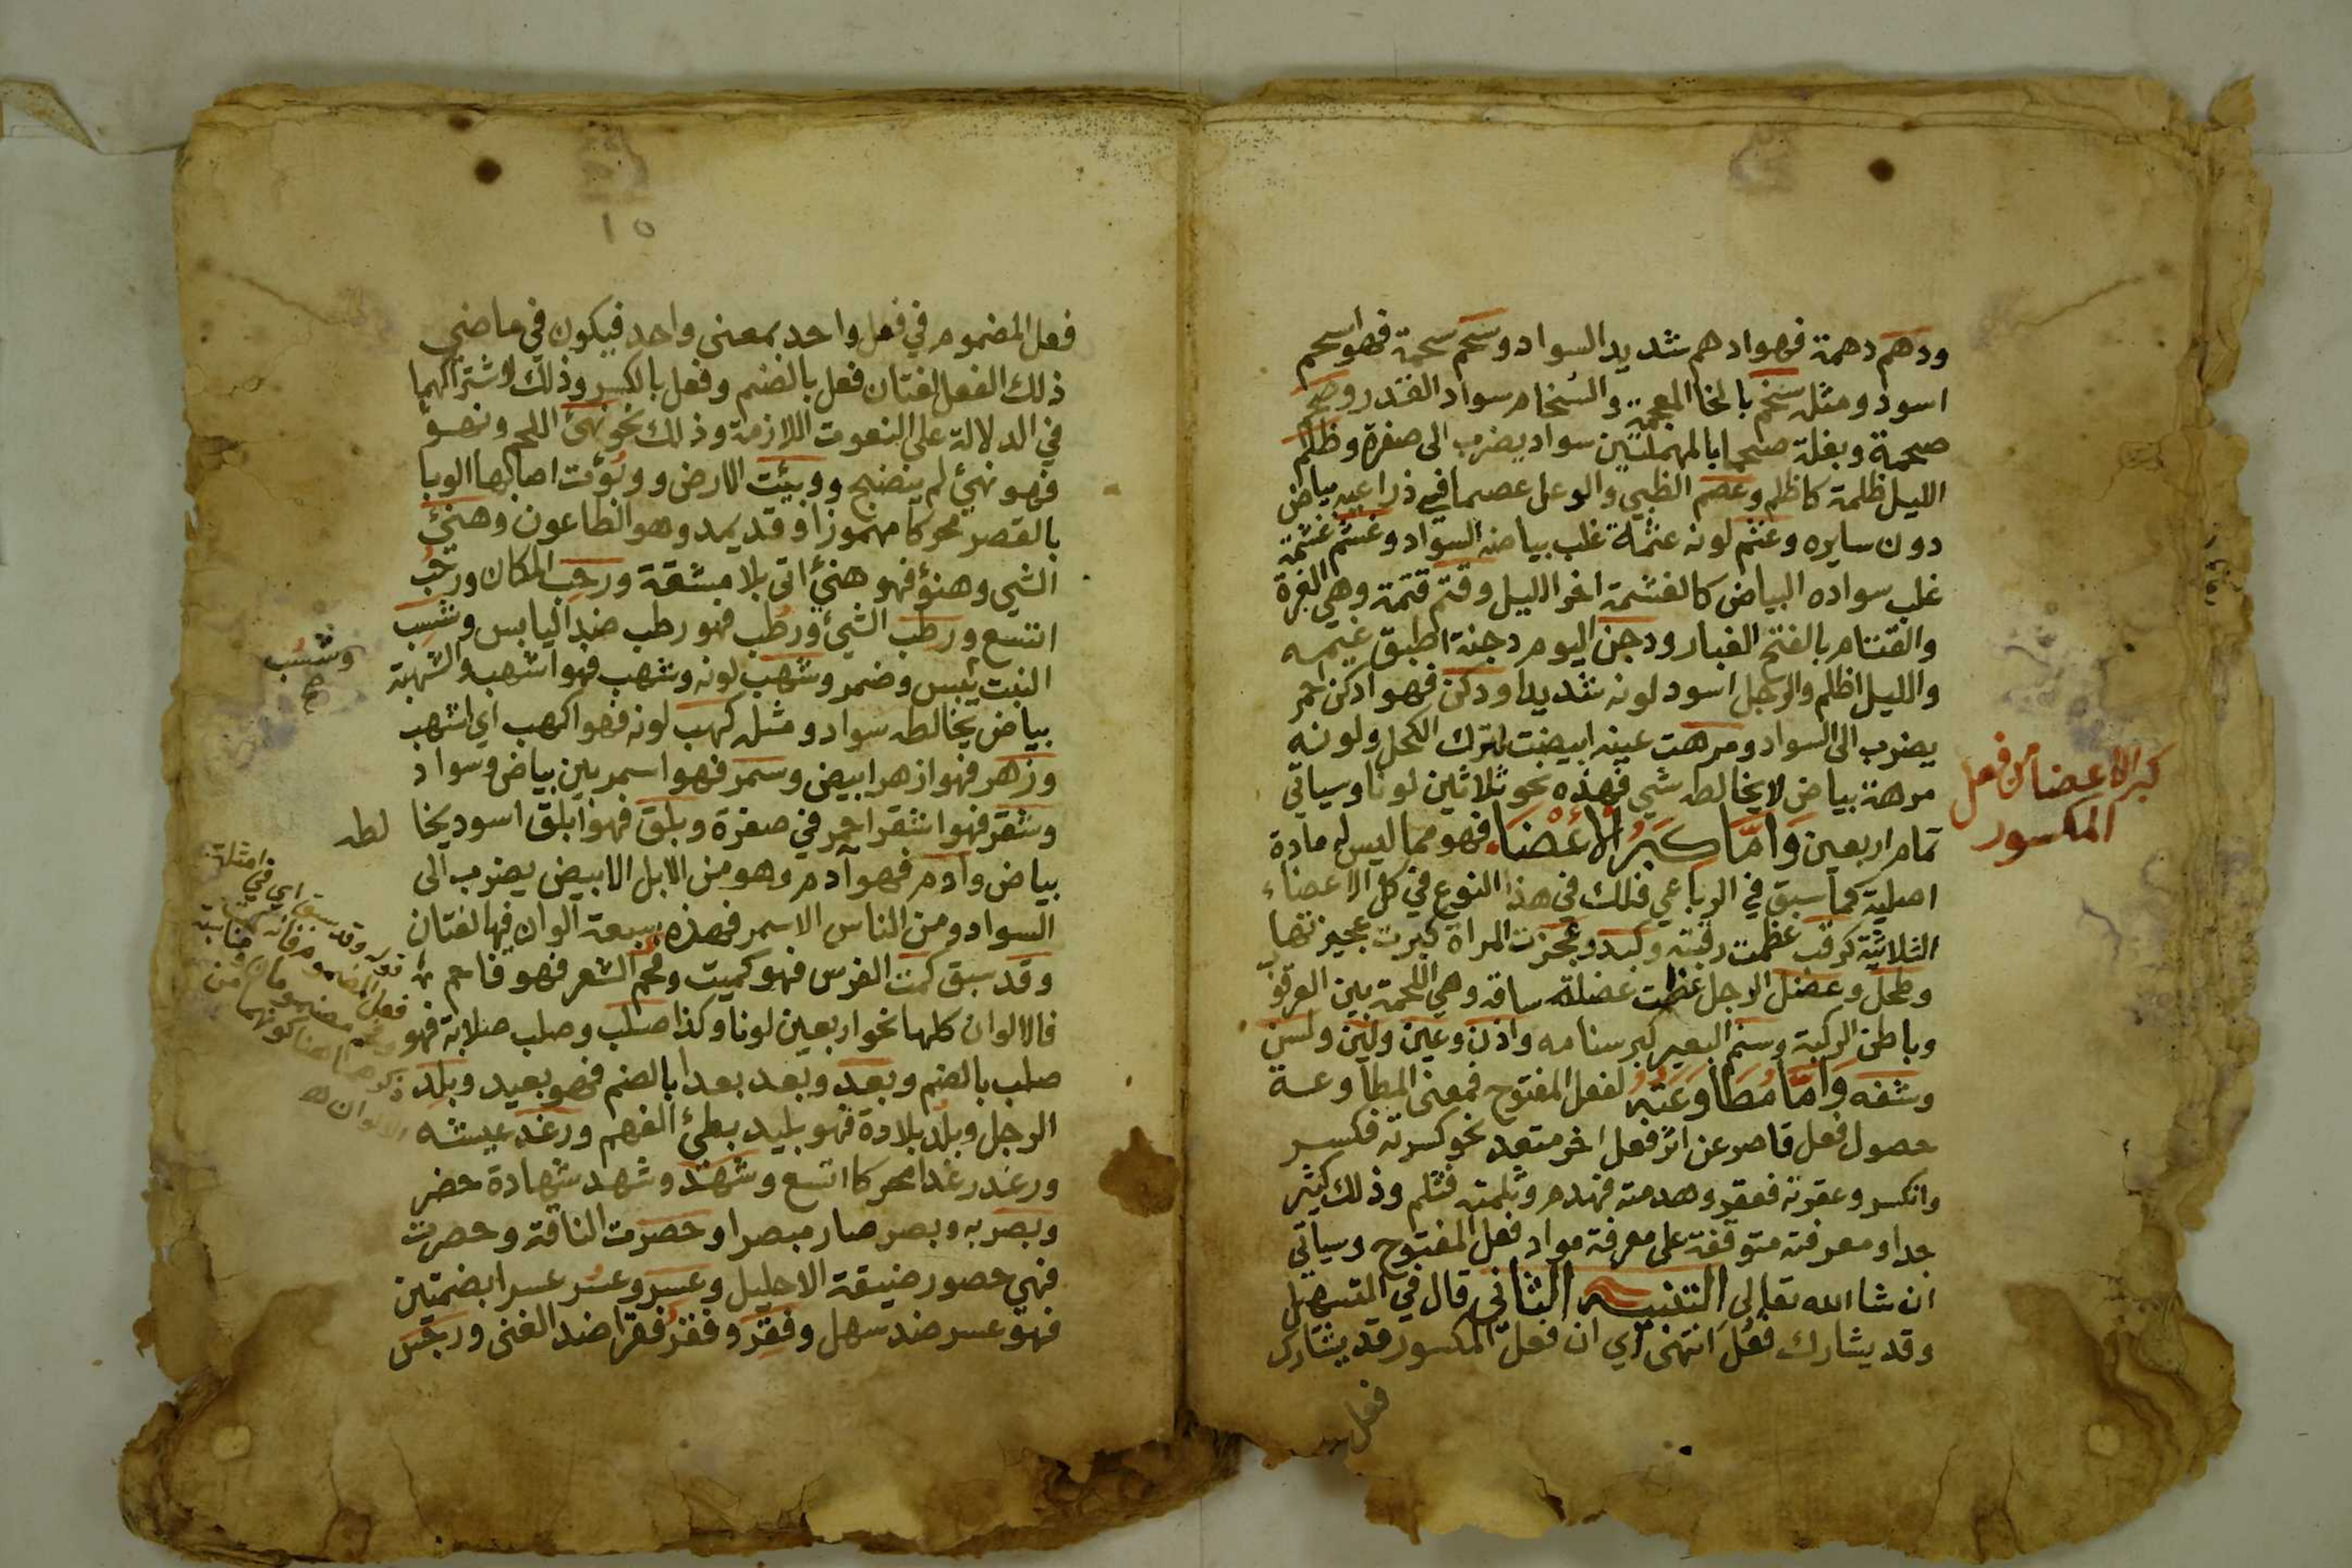 ودهم دهمة فهو ادهم شديد السواد وسحم سحمة فهو اسحم
اسود ومثله سخم بالخا المعجمة والسخام سواد القدر وصحم
صحمة وبغلة صحما بالمهملتين سواد يضرب الى صفرة وظلم
الليل ظلمة كاظلم وعصم الظبي والوعل عصما في ذراعيه بياض
دون سايره وعثم لونه عثمة غلب بياضه السواد وغشم غشمة
غلب سواده البياض كالغشمة اخر الليل وقتم قتمة وهي الغبرة
والقتام بالفتح الغبار ودجن اليوم دجنة اطبق غيمه
والليل اظلم والرجل اسود لونه شديدا ودكن فهو ادكن احمر
يضرب الى السواد ومرهت عينه ابيضت لترك الكحل ولونه
مرهة بياض لا يخالطه شي فهذه نحو ثلاثين لونا وسياتي
تمام اربعين وَامَّا كبَرُ الأعْضَاء فهو مما ليس له مادة
اصلية كما سبق في الرباعي فذلك في هذا النوع في كل الاعضاء
الثلاثية كرقب عظمت رقبته وكبد وعجزت المراة كبرت عجيزتها
وطحل وعضل الرجل عظمت عضلة ساقه وهي اللحمة بين العرقوب
وباطن الركبة وسنم البعير كبر سنامه واذن وعين ولسن
وشفه وَامَّا مُطَاوَعَتُهُ لفعل المفتوح فمعنى المطاوعة
حصول فعل قاصر عن اثر فعل اخر متعد نحو كسرته فكسر
وانكسر وعقرته فعقر وهدمته فهدم وثلمته فثلم وذلك كثير
جدا ومعرفته متوقفة على معرفة مواد فعل المفتوح وسياتي
ان شا الله تعالى التنبيه الثاني قال في التسهيل
وقد يشارك فعُل انتهى اي ان فعل المكسور قد يشارك
فعل
كبر الاعضا من فعل
المكسور
١٥
فعل المضموم في فعل واحد بمعنى واحد فيكون في ماضي
ذلك الفعل لغتان فعل بالضم وفعل بالكسر وذلك لاشتراكهما
في الدلالة على النعوت اللازمة وذلك نحو نهئ اللحم ونهؤ
فهو نهئ لم ينضج ووبئت الارض ووبُؤت اصابها الوبا
بالقصر محركا مهموزا وقد يمد وهو الطاعون وهنئ
الشي وهنؤ فهو هنئ اتى بلا مشقة ورحب المكان ورحُب
اتسع ورطب الشئ ورطُب فهو رطب ضد اليابس وشسب
وشسُب
صح
النبت يبس وضمر وشهب لونه وشهب فهو اشهب والشهبة
بياض يخالطه سواد ومثله كهب لونه فهو اكهب اي اشهب
وزهر فهو ازهر ابيض وسمر فهو اسمر بين بياض وسواد
وشقر فهو اشقر احمر في صفرة وبلق فهو ابلق اسود يخا لطه
بياض وادم فهو آدم وهو من الابل الابيض يضرب الى
السواد ومن الناس الاسمر فهذه سبعة الوان فيها لغتان
وقد سبق كمت الفرس فهو كميت وفحم الشعر فهو فاحم
فالالوان كلها نحو اربعين لونا وكذا صلب وصلب صلابة فهو
صلب بالضم وبعد وبعد بعدا بالضم فهو بعيد وبلد
الرجل وبلد بلادة فهو بليد بطئ الفهم ورغد عيشه
ورغد رغدا محركا اتسع وشهد وشهد شهادة حضر
وبصر به وبصر صار مبصرا وحصرت الناقة وحصرت
فهي حصور ضيقة الاحليل وعسر وعسر عسرا بضمتين
فهو عسر ضد سهل وفقر وفقر فقرا ضد الغنى ورجس
قوله وقد سبق اي في امثلة
فعل المضموم